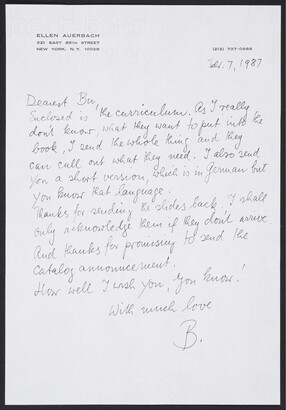 ELLEN AUERBACH
231 EAST 85TH STREET
NEW YORK, N.Y. 10028
(212) 737-0688
7, 1987
Dearest
Enclosed is the curriculum. As I really
don't know, what they want to put into the
book, I send the whole thing and they
can cull out what they need. I also send
you a short version, which is in German but
you know that language.
Thanks for sending the slides back. I shall
only acknowledge them if they don't arrive
And thanks for promising to send the
catalog announcement.
How well I wish you, you know!
With much love
B.